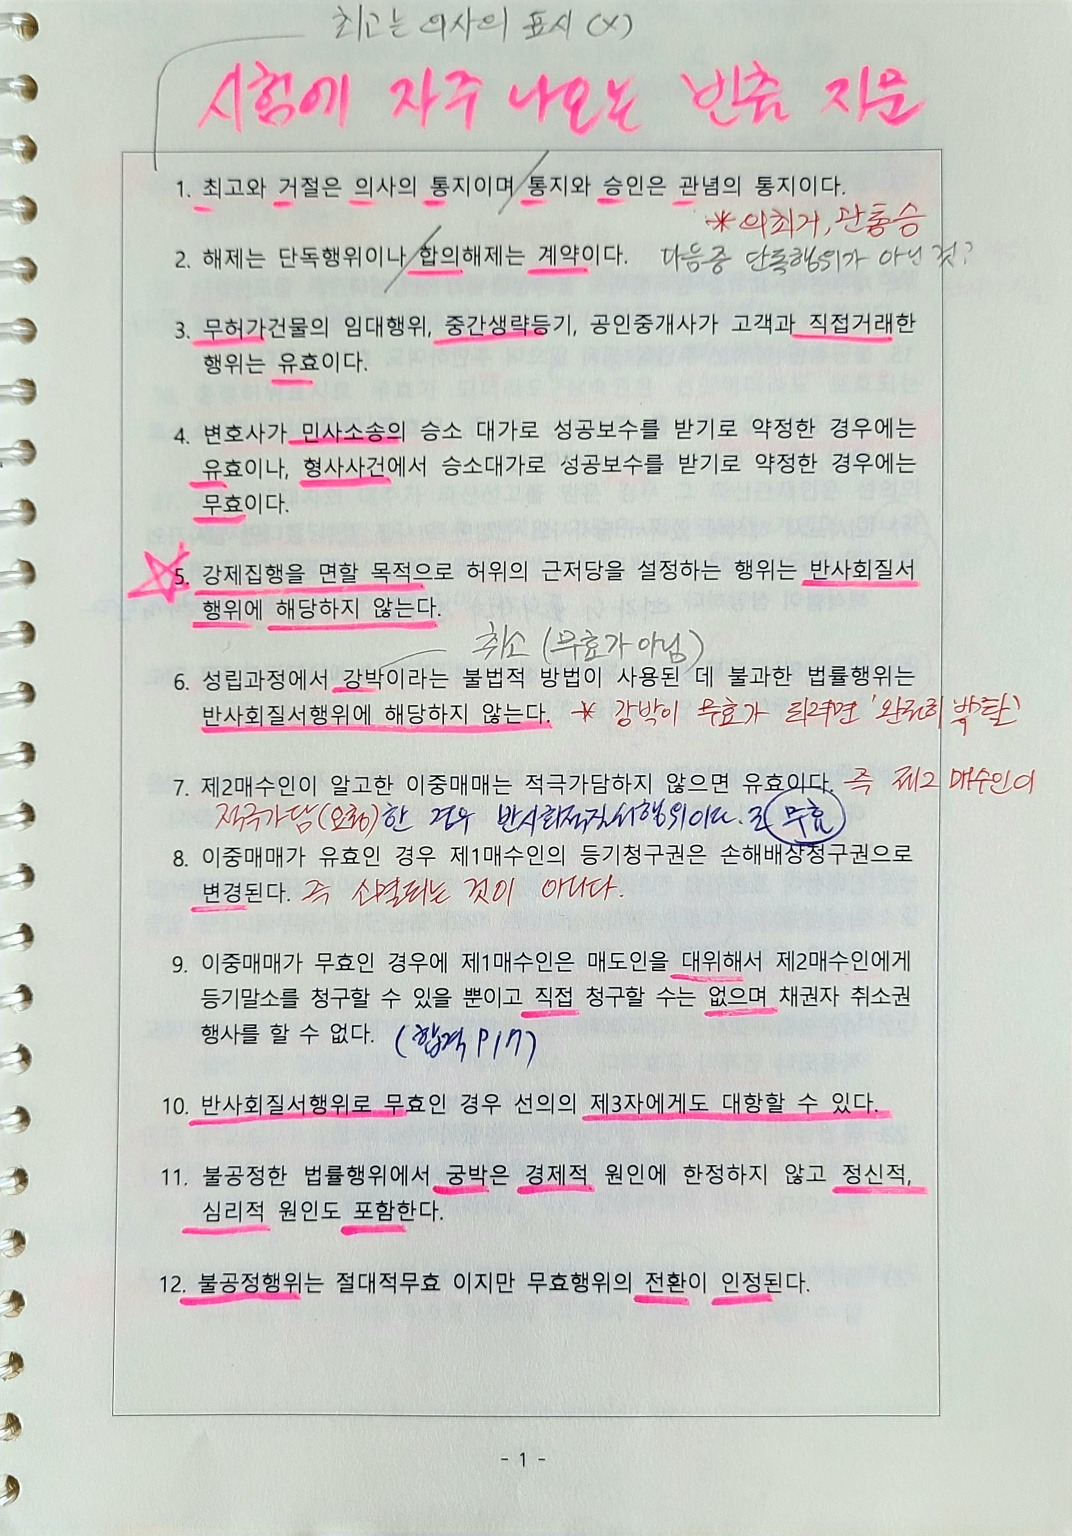 최고는 의사의 표시 (X)
시험에 자주 나오는 빈출 지문
1. 최고와 거절은 의사의 통지이며 통지와 승인은 관념의 통지이다.
* 의최거, 관통승
2. 해제는 단독행위이나 합의해제는 계약이다. 다음중 단독행위가 아닌 것?
3. 무허가건물의 임대행위, 중간생략등기, 공인중개사가 고객과 직접거래한
행위는 유효이다.
4. 변호사가 민사소송의 승소 대가로 성공보수를 받기로 약정한 경우에는
유효이나, 형사사건에서 승소대가로 성공보수를 받기로 약정한 경우에는
무효이다.
5. 강제집행을 면할 목적으로 허위의 근저당을 설정하는 행위는 반사회질서
행위에 해당하지 않는다.
취소 (무효가 아님)
6. 성립과정에서 강박이라는 불법적 방법이 사용된 데 불과한 법률행위는
반사회질서행위에 해당하지 않는다. * 강박이 무효가 되려면 '완전히 박탈'
7. 제2매수인이 알고한 이중매매는 적극가담하지 않으면 유효이다. 즉 제2매수인이
적극가담(요청)한 경우 반사회적질서행위이다. 고 무효
8. 이중매매가 유효인 경우 제1매수인의 등기청구권은 손해배상청구권으로
변경된다. 즉 소멸되는 것이 아니다.
9. 이중매매가 무효인 경우에 제1매수인은 매도인을 대위해서 제2매수인에게
등기말소를 청구할 수 있을 뿐이고 직접 청구할 수는 없으며 채권자 취소권
행사를 할 수 없다. (합격 P17)
10. 반사회질서행위로 무효인 경우 선의의 제3자에게도 대항할 수 있다.
11. 불공정한 법률행위에서 궁박은 경제적 원인에 한정하지 않고 정신적,
심리적 원인도 포함한다.
12. 불공정행위는 절대적무효 이지만 무효행위의 전환이 인정된다.
- 1 -